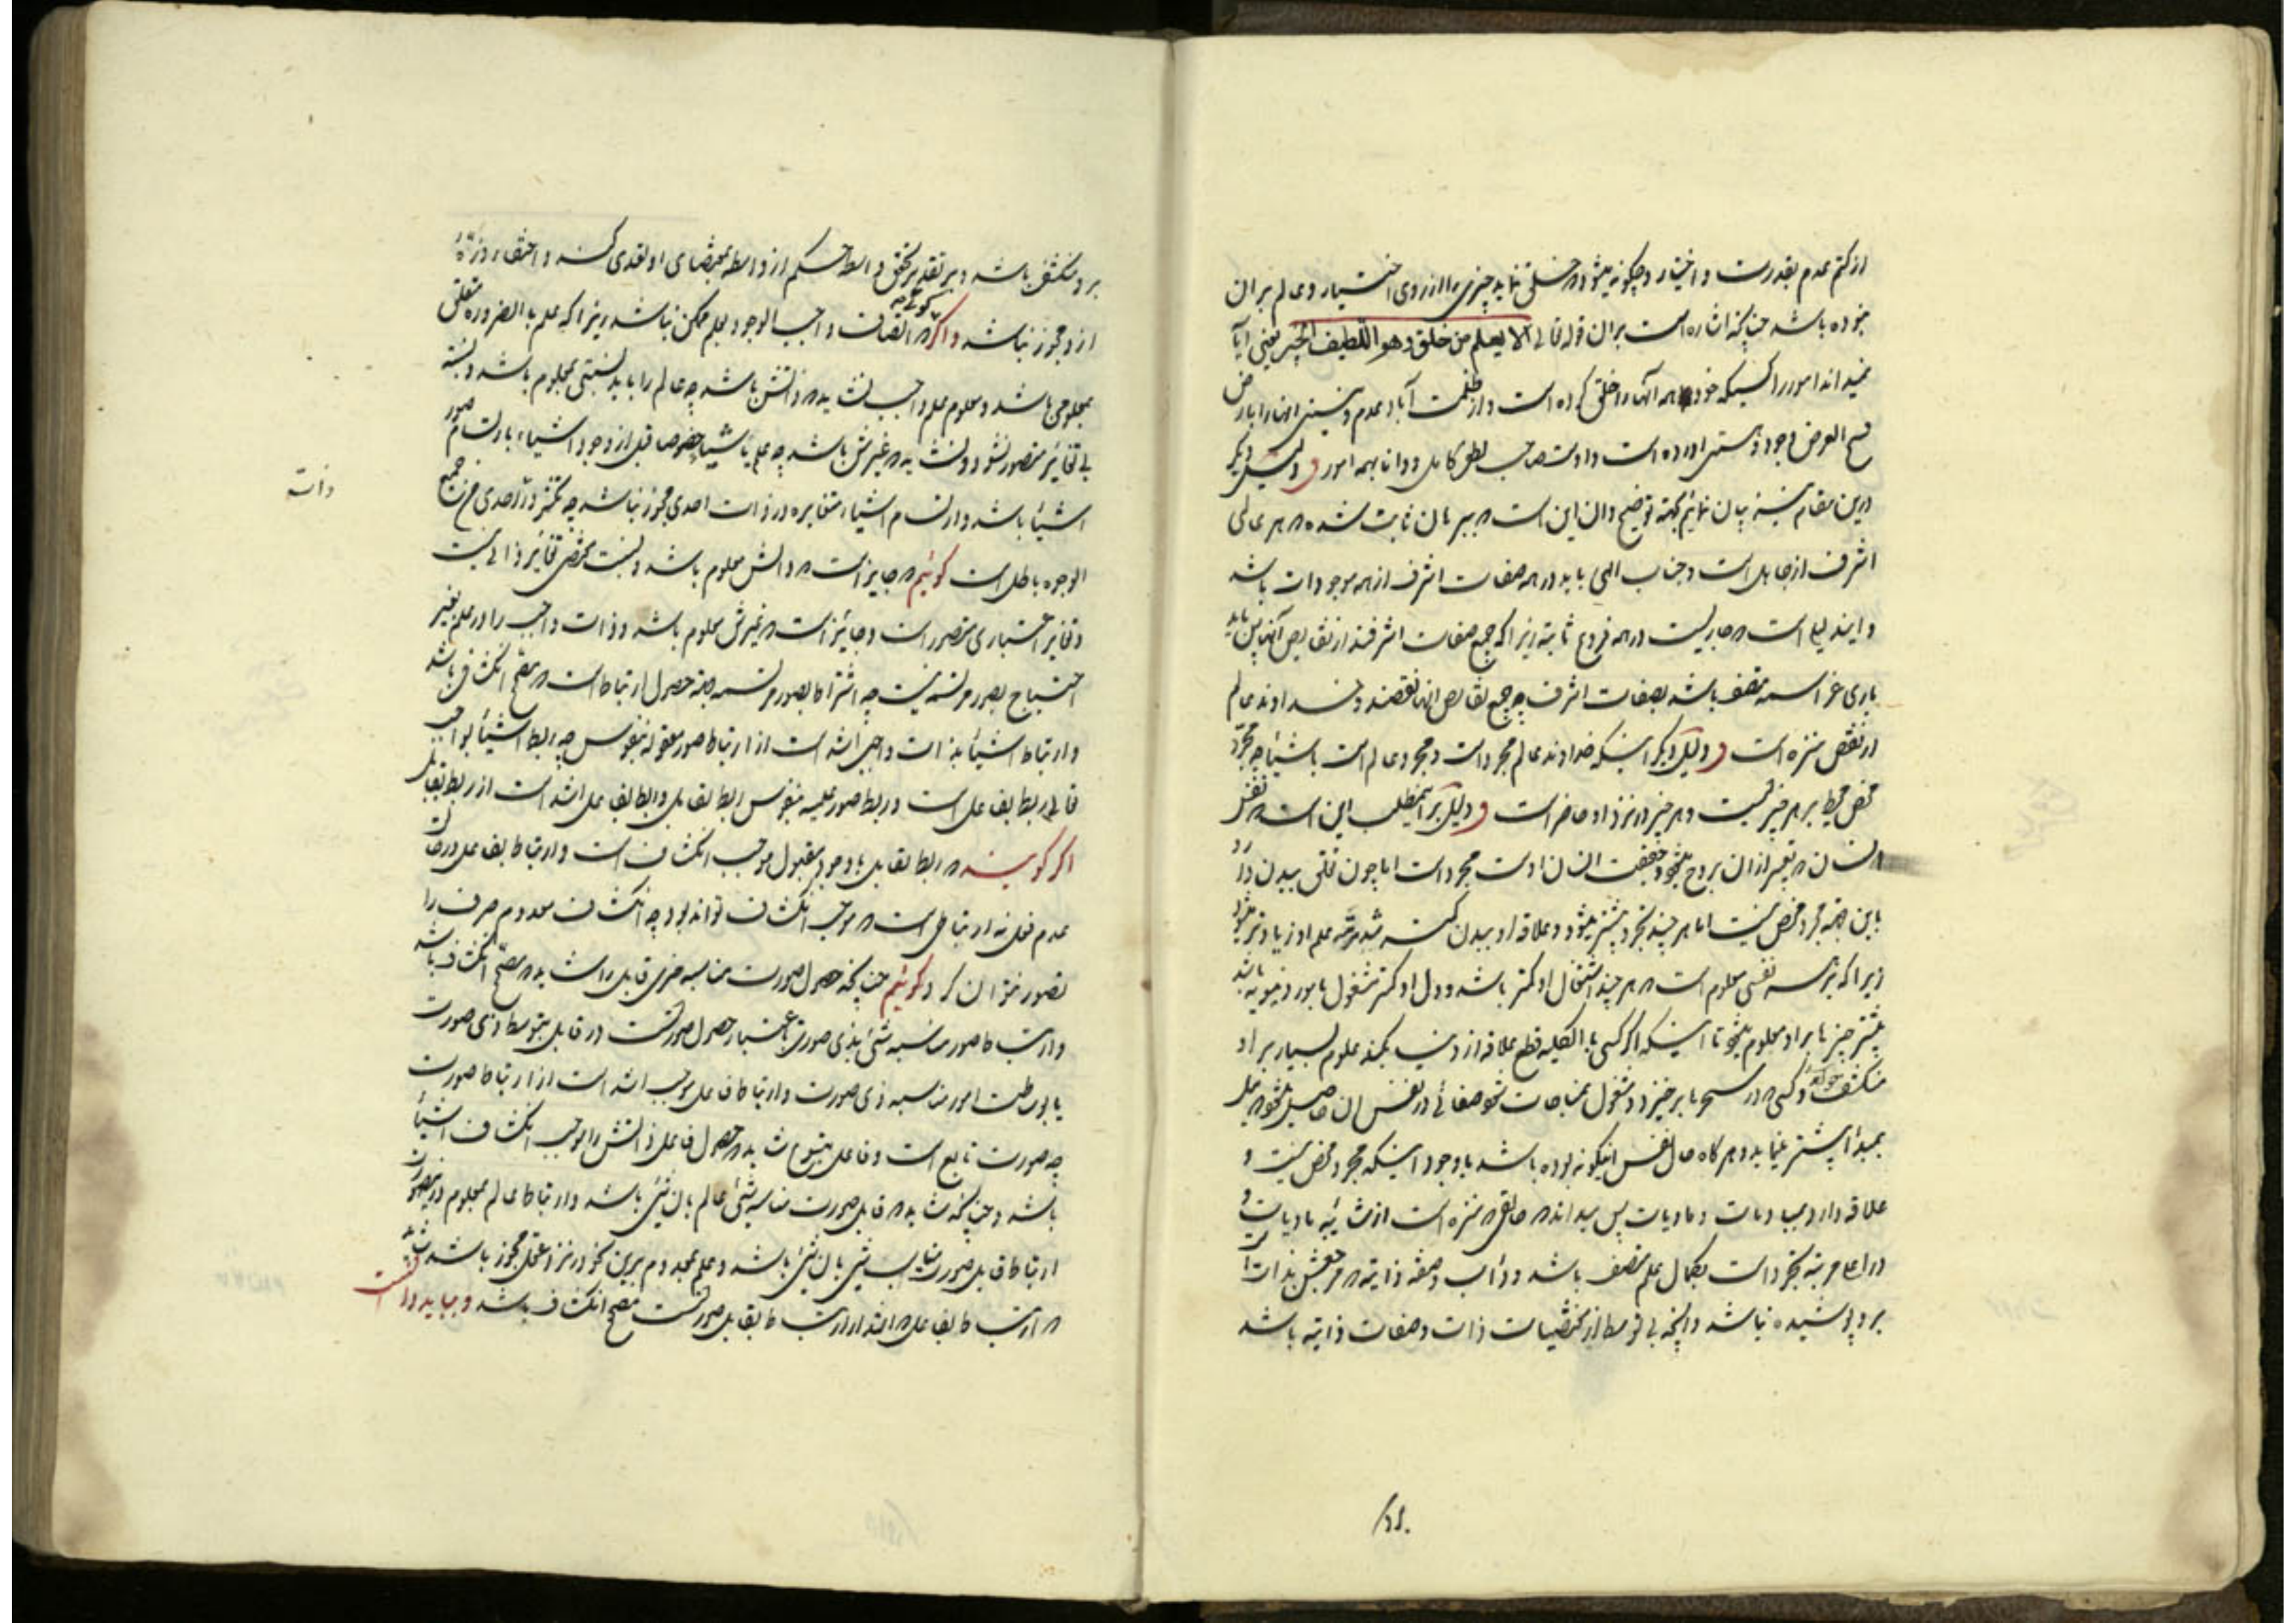 از کتم عدم بقدرت و اختیار و چگونه میشود که خلق نماید چیزی را از روی اختیار و عالم بر آن
نبوده باشد چنانکه اشاره است بر آن قوله تعالی الا یعلم من خلق وهو اللطیف الخبیر یعنی آیا
نمیداند امور را کسیکه خود همه آنها را خلق کرده است و از ظلمت آباد عدم و نیستی آنها را بارض
فسیح العرض وجود و هستی آورده است و اوست صاحب لطف کامل و دانا بهمه امور و دلیل دیگر
درین مقام نیز بیان نمائیم بجهة توضیح و آن این است که ببرهان ثابت شده که هر عالمی
اشرف از جاهل است و جناب الهی باید در همه صفات اشرف از همه موجودات باشد
و این دلیل است که جاریست در همه فروع ثابته زیرا که جمیع صفات اشرفند از نقایص آنها پس باید
باری عز اسمه متصف باشد بصفات اشرف چه جمیع نقایص آنها نقصند و خداوند عالم
از نقص منزه است و دلیل دیگر اینکه خداوند عالم مجرد است و مجرد عالم است باشیاء چه مجرد
محض محیط بر هر چیز است و هر چیز در نزد او حاضر است و دلیل بر این مطلب این است که نفس
انسان که تعبیر از آن بروح میشود و حقیقت انسان اوست مجرد است اما چون تعلق ببدن دارد
باین جهة مجرد محض نیست اما هر چند تجرد بیشتر میشود و علاقه او ببدن کمتر شد مرتبه علم او زیادتر میشود
زیرا که بتجربه نفسی معلوم است که هر چند اشتغال او کمتر باشد و دل او کمتر مشغول بامور دنیویه باشد
بیشتر چیزها بر او معلوم میشود تا اینکه اگر کسی بالکلیه قطع علاقه از دنیا بکند علوم بسیار بر او
منکشف خواهد شد و کسی که در سحرها برخیزد و مشغول بمناجات شود صفائی در نفس آن حاصل میشود که میل
بمبدأ بیشتر مینماید و هر گاه حال نفس اینگونه بوده باشد با وجود اینکه مجرد محض نیست و
علاقه دارد بمادیات و مادیات پس مبدء اند که خالق که منزه است از شائبه مادیات و
در اعلا مرتبه تجرد است بکمال علم متصف باشد و ذات و صفه ذاتیه که مرجعش بذاتست
بر او پوشیده نباشد و آنچه بی توسط از مقتضیات ذات و صفات ذاتیه باشد
۱۵.
بر او منکشف باشد و بر تقدیر تحقق واسطه حکم از واسطه بمقتضای او تعدی کند و اختفاء ذره
از او مجوز نباشد و اگر گویند که اتصاف واجب الوجود بعلم ممکن نباشد زیرا که علم بالضروره متعلق
بمعلومی باشد و معلوم علم واجب نشاید که ذاتش باشد چه عالم را باید نسبتی بمعلوم باشد و نسبت
بی تغایر متصور نشود و نشاید که غیرش باشد چه علم باشیا خصوصا قبل از وجود اشیاء بارتسام صور
اشیاء باشد و ارتسام اشیاء متغایره در ذات احدی مجوز نباشد چه تکثر در احدی من جمیع
الوجوه باطل است گوئیم که جایز است که ذاتش معلوم باشد و نسبت مقتضی تغایر ذاتی نیست
و تغایر اعتباری متصور است و جائز است که غیرش معلوم باشد و ذات واجب را در علم بغیر
احتیاج بصور مرتسمه نیست چه اشتراط بصور مرتسمه بجهة حصول ارتباط است که مصحح انکشاف باشد
و ارتباط اشیاء بذات واجبی اشد است از ارتباط صور معقوله بنفوس چه ربط اشیاء بواجب
تعالی ربط بفاعل است و ربط صور علمیه بنفوس ربط بقابل و ربط بفاعل اشد است از ربط بقابل
اگر گویند که ربط بقابل با وجود مقبول موجب انکشاف است و ارتباط بفاعل در حالت
عدم فعل نه ارتباطی است که موجب انکشاف تواند بود چه انکشاف معدوم صرف را
تصور نتوان کرد گوئیم چنانچه حصول صورت مناسبه مرئی قابل را شاید که مصحح انکشاف باشد
و ارتباط صور مناسبه شئ بذی صورت باعتبار حصول صورتست در قابل بتوسط ذی صورت
یا بوساطت امور مناسبه ذی صورت و ارتباط فاعل موجب اشد است از ارتباط صورت
چه صورت تابع است و فاعل متبوع شاید که حصول فاعل ذاتش را موجب انکشاف اشیاء
باشد و چنانکه شاید که قابل صورت مناسبه شئ عالم بآن شئ باشد و ارتباط عالم بمعلوم در صورت
ارتباط قابل صورت مناسب شئ بآن شئ باشد و علم بمعدوم برین نحو در نزد عقل مجوز باشد شاید
که ارتباط بفاعل که اشد از ارتباط بقابل صورتست مصحح انکشاف باشد و بباید دانست
دانسته